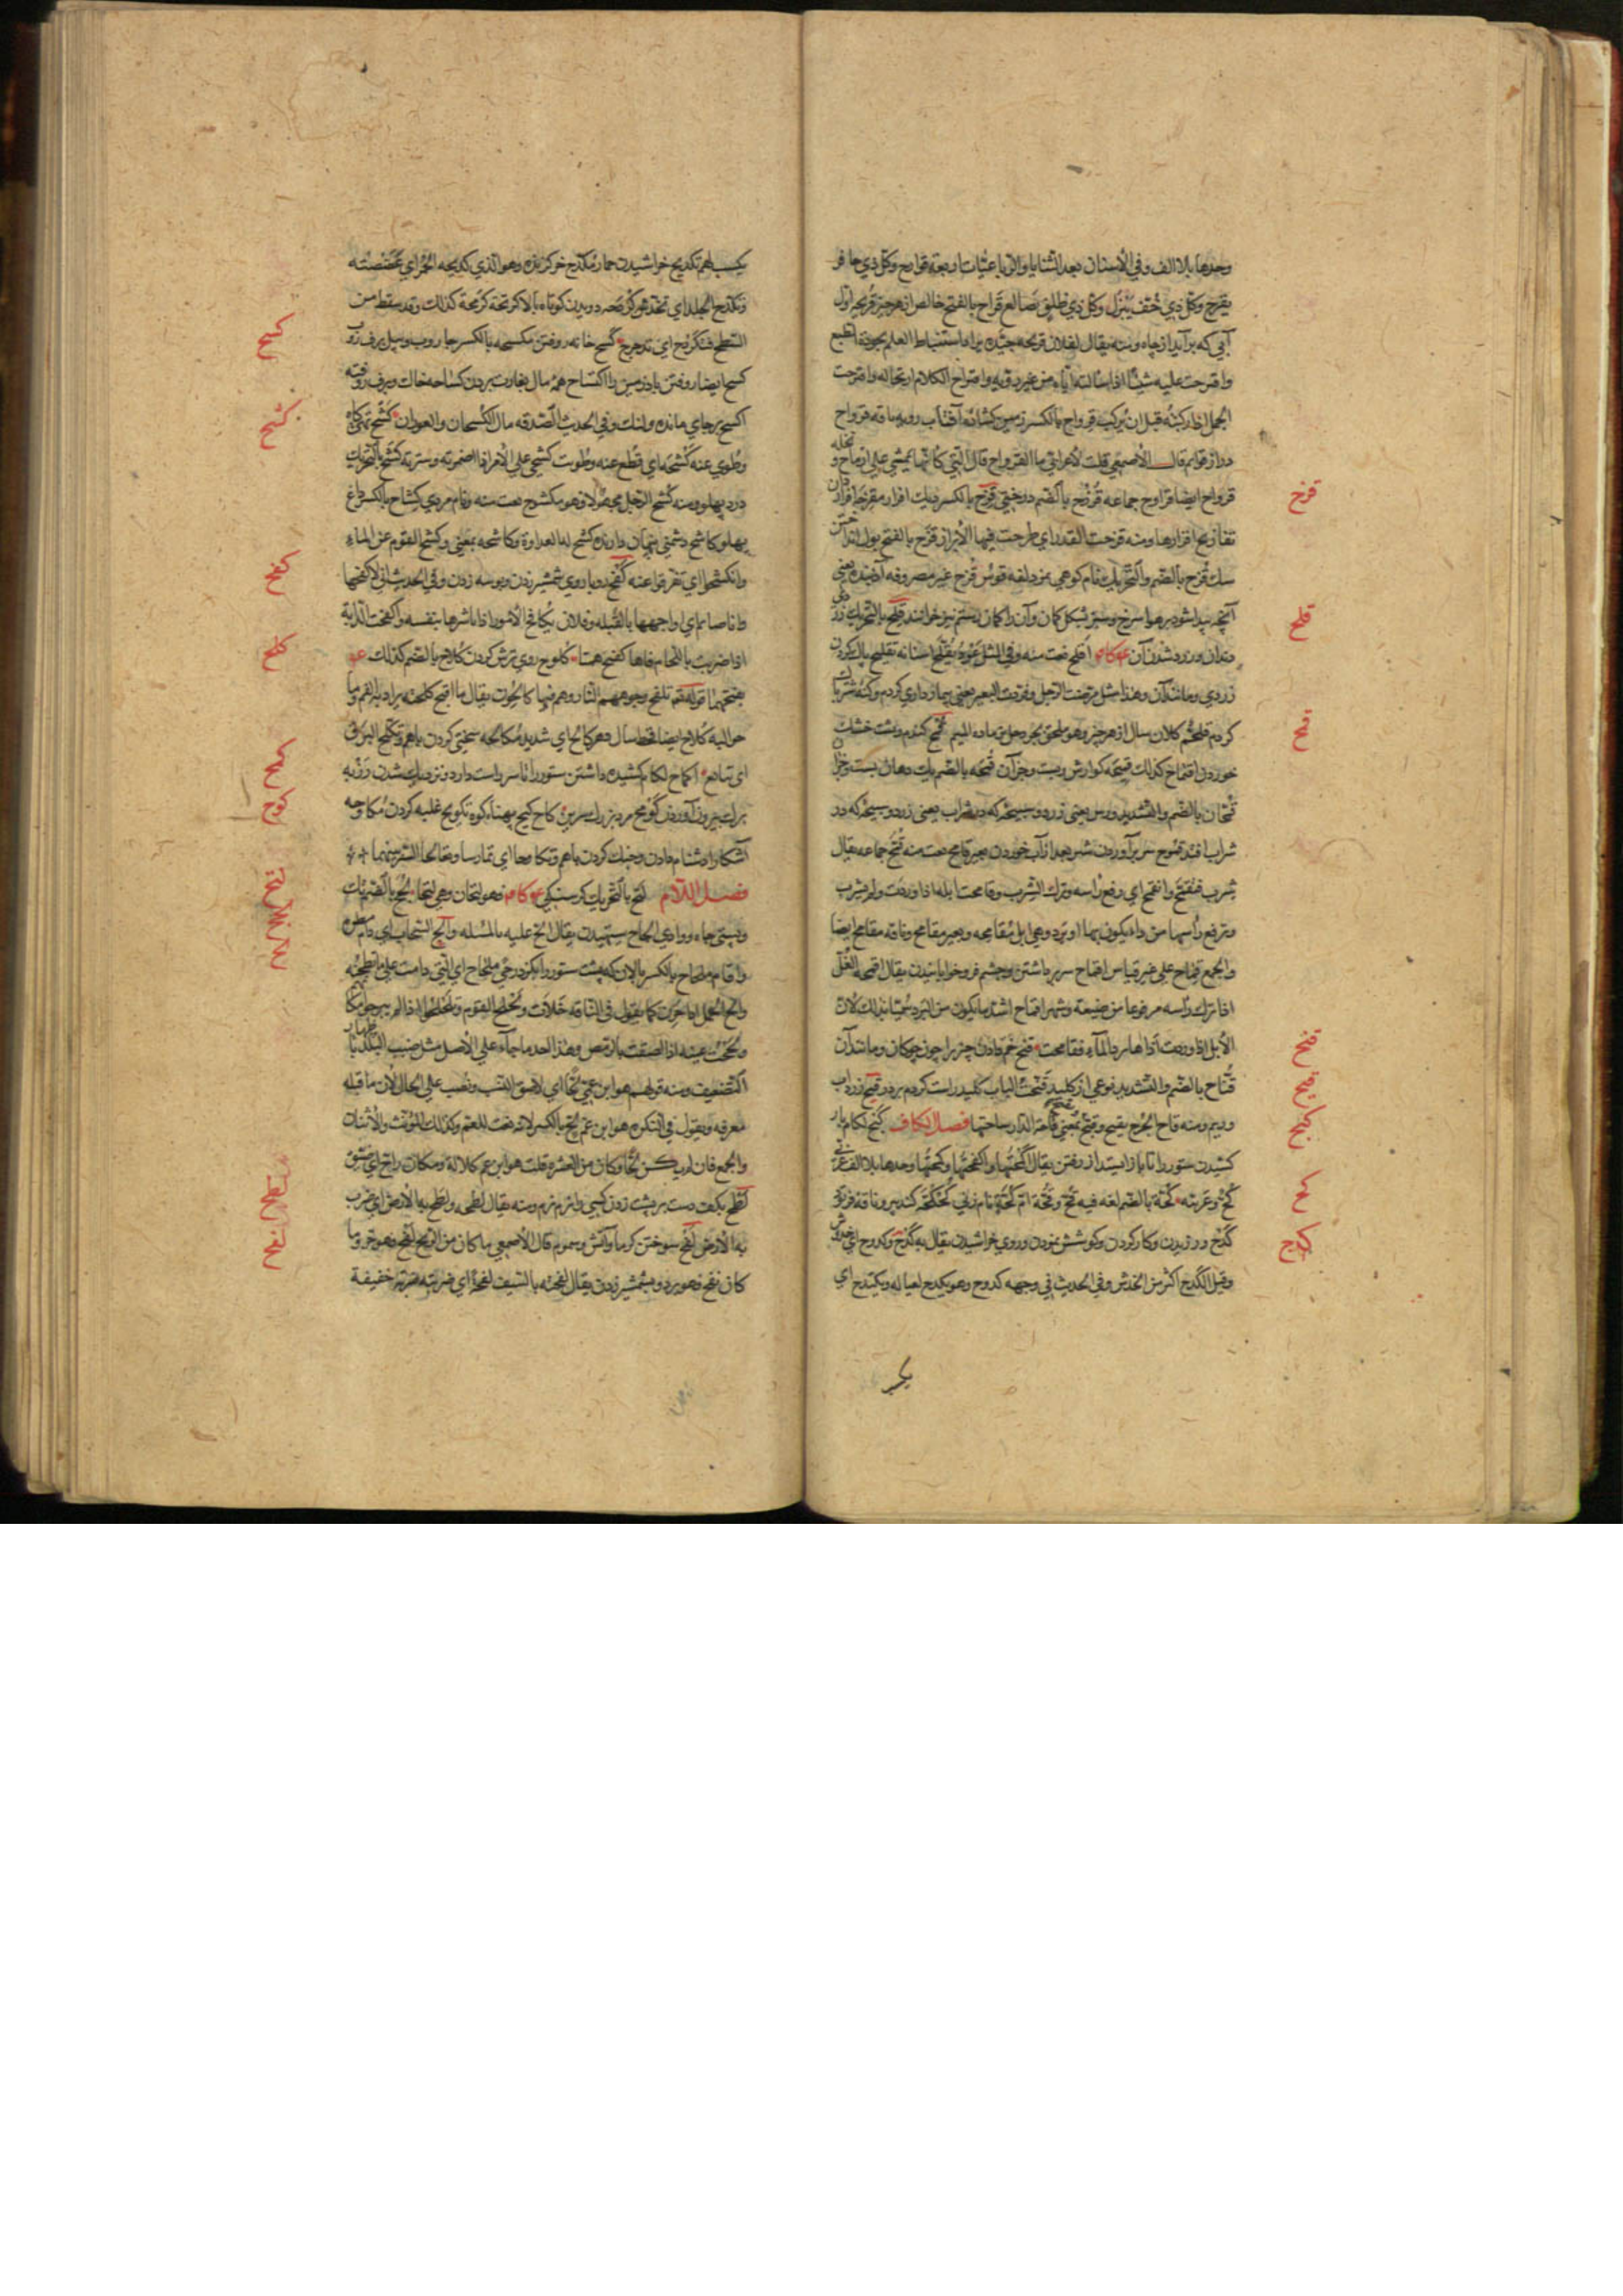 وحدها بلا الف وفي الأسنان بعد الثنايا والرباعيات اربعة قوارح وكل ذي حافر
يقرح وكل ذي خف يبزل وكل ذي ظلف يصلغ قراح بالفتح خالص از هر چيز قريحه اول
آبي كه بر آيد از چاه ومنه يقال لفلان قريحه جيده يراد استنباط العلم بجودة الطبع
واقترحت عليه شيئا اذا سالته اياه من غير رويه واقتراح الكلام ارتجاله واقترحت
الجمل اذا ركبته قبل ان يركب قرواح بالكسر زمين كشاده آفتاب رويه ناقه قرواح
دراز قوايم قال الأصمعي قلت لأعرابي ما القرواح قال التي كأنها تمشي علي ارماح و نخله
قرواح ايضا قراويح جماعه قزح بالكسر ديك افزار
تقازيح افزارها ومنه قزحت القدر اي طرحت فيها الأبزار قزح بالفتح بول انداختن
سك قزح بالضم والتحريك نام كوهي بمزدلفه قوس قزح غير مصروفه آفنده يعني
آنچه پيدا شود بر هوا سرخ وسبز بشكل كمان وآن را كمان رستم نيز خوانند قلح بالتحريك زردي
دندان وزرد شدن آن اقلح نعت منه وفي المثل عود يقلح اسنانه تقليح پاك كردن
زردي ومانند آن وهذا مثل مرضت الرجل وقردت البعير يعني بيمار داري كردم وكنه
كردم قلحم كلان سال از هر چيز وهو ملحق بجردحل ماده الميم قمح كندم
خوردن اقتماح كذلك قميحه كوارش
قمحان بالضم والتشديد ورس يعني زردو سپيچه كه در شراب يعني زردو سپيچه كه در
شراب افتد قموح سر بر آوردن شتر بعد از آب خوردن بعير قامح نعت منه قمح جماعه يقال
شرب فتقمح وانقمح اي رفع رأسه وترك الشرب وقامحت ابله اذا وردت ولم تشرب
وترفع رأسها من داء يكون بها او برد وهي ابل مقامحه وبعير مقامح وناقه مقامح ايضا
والجمع قماح علي غير قياس اقماح سر بر داشتن وچشم فرو خوابانيدن يقال اقمحه الغل
اذا ترك رأسه مرفوعا من ضيقه وشهرا قماح اشد ما يكون من البرد سميا بذلك لأن
الأبل اذا وردت آذاها برد الماء فقامحت قنح خم دادن چيز را چون چوكان ومانند آن
قناح بالضم والتشديد نوعي از كليد قنحت الباب كليد راست كردم بر در قيح زرداب
وريم ومنه قاح الجرح يقيح قاحة الدار ساحتها فصل الكاف كبح لكام باز
كشيدن ستور را تا باز ايستد از رفتن يقال
كح وعربيه كحة بالضم لغه فيه قح وقحة ام كحة نام زني كحكح كندپير وناقه
كدح ورزيدن وكار كردن وكوشش نمودن وروي خراشيدن يقال به كدح وكدوح اي خدوش
وقيل الكدح اكثر من الخدش وفي الحديث في وجهه كدوح وهو يكدح لعياله ويكتدح اي
يكسب
قزح
قلح
قمح
قنح
قيح
كبح
كحح
كدح
يكسب لهم تكديح خراشيدن حمار مكدح خر كزيده وهو الذي كدحته الحمر اي عضضته
وتكدح الجلد اي تخدش كردحه دويدن كوتاه بالا كرتحة كرمحة كذلك وقد سقط من
السطح فتكردح اي تدحرج كسح خانه روفتن مكسحه بالكسر جاروب
كسح ايضا روفتن باد زمين را اكتساح همه مال بغارت بردن كساحه خاك وبرف روفته
اكسح برجاي مانده ولنك وفي الحديث الصدقه مال الكسحان والعوران كشح تهيكاه
وطوي عنه كشحه اي قطع عنه وطويت كشحي علي الأمر اذا اضمرته وسترته كشح بالتحريك
درد پهلو ومنه كشح الرجل مجهولا وهو مكشوح نعت منه ونام مردي كشاح بالكسر داغ
پهلو كاشح دشمني پنهان دارنده كشح له العداوة وكاشحه بمعني وكشح القوم عن الماء
وانكشحوا اي تفرقوا عنه كفح رويا روي شمشير زدن وبوسه زدن وفي الحديث اني لأكفحها
وانا صايم اي اواجهها بالقبله وفلان يكافح الأمور اذا باشرها بنفسه وأكفحت الدابة
اذا ضربت باللجام فاها كفيح همتا كلوح روي ترش كردن كلاح بالضم كذلك
قوله تع تلفح وجوههم النار وهم فيها كالحون يقال ما اقبح كلحته يراد به الفم وما
حواليه كلاح ايضا قحط سال دهر كالح اي شديد مكالحه سختي كردن باهم وتكلح البرق
اي تتابع اكماح لكام كشيده داشتن ستور را تا سر راست دارد ونزديك شدن رز به
برك بيرون آوردن كومح مرد بزرك سرين كاح كيح پهناء كوه تكويح غلبه كردن مكاوحه
آشكارا دشنام دادن وجنك كردن باهم وتكاوحا اي تمارسا وتعالجا الشر بينهما
فصل اللام لتح بالتحريك كرسنكي فهو لتحان وهي لتحا لجح بالضم
يقال الح عليه بالمسئله والح السحاب اي دام مطره
واقام ملحاح بالكسر پالان كه پشت ستور را بكزد رحي ملحاح اي التي دامت علي ما تطحنه
والح الجمل اذا حرن كما يقول في الناقه خلأت وتلحلح القوم ولحلحوا اذا لم يبرحوا مكانهم
ولححت عينه اذا لصقت بالرمص وهذا احد ما جاء علي الأصل مثل ضبب البلد باظهار
التضعيف ومنه قولهم هو ابن عمي لحا اي لاصق النسب ونصب علي الحال لأن ما قبله
معرفه ويقول في النكره هو ابن عم لح بالكسر لانه نعت للعم وكذلك المونث والأثنان
والجمع فان لم يكن لحا وكان من العشيره قلت هو ابن عم كلالة ومكان لاح اي ضيق
لطح بكف دست بر پشت زدن كسي را نرم نرم ومنه يقال لطحه ولطح به الأرض اي ضرب
به الأرض لفح سوختن كرما وآتش وسموم قال الأصمعي ما كان من الريح لفح وهو حر وما
كان نفح فهو برد وبشمشير زدن يقال لفحته بالسيف لفحة اي ضربته ضربة خفيفة
كسح
كشح
كفح
كلح
كمح
كوح
لتح
لجح
لحح
لطح
لفح